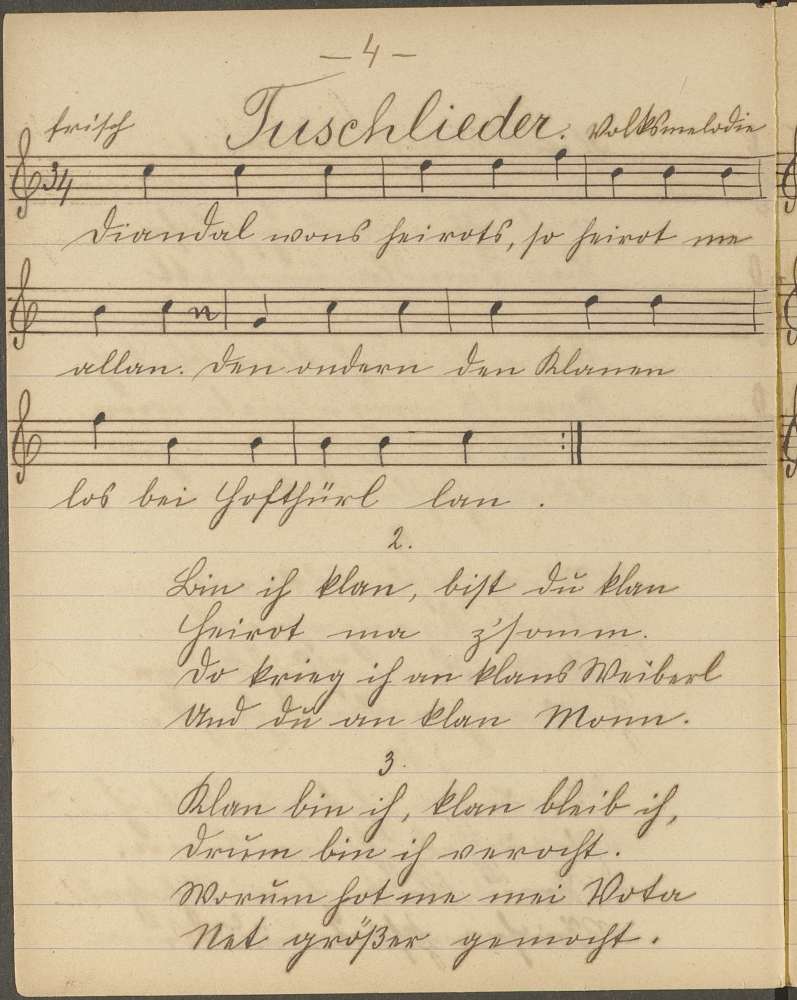 – 4 –
frisch Tuschlieder. Volksmelodie
3/4
Diandal wons heirots, so heirot me
allan. Den ondern den Klanen
los bei Hofthürl lan.
2.
Bin ih klan, bist dů klan
Heirot ma z'somm.
Do krieg ih an klans Weiberl
Und dů an klan Monn.
3.
Klan bin ih, klan bleib ih,
Drum bin ih verocht.
Worum hot me mei Vota
Net größer gemocht.